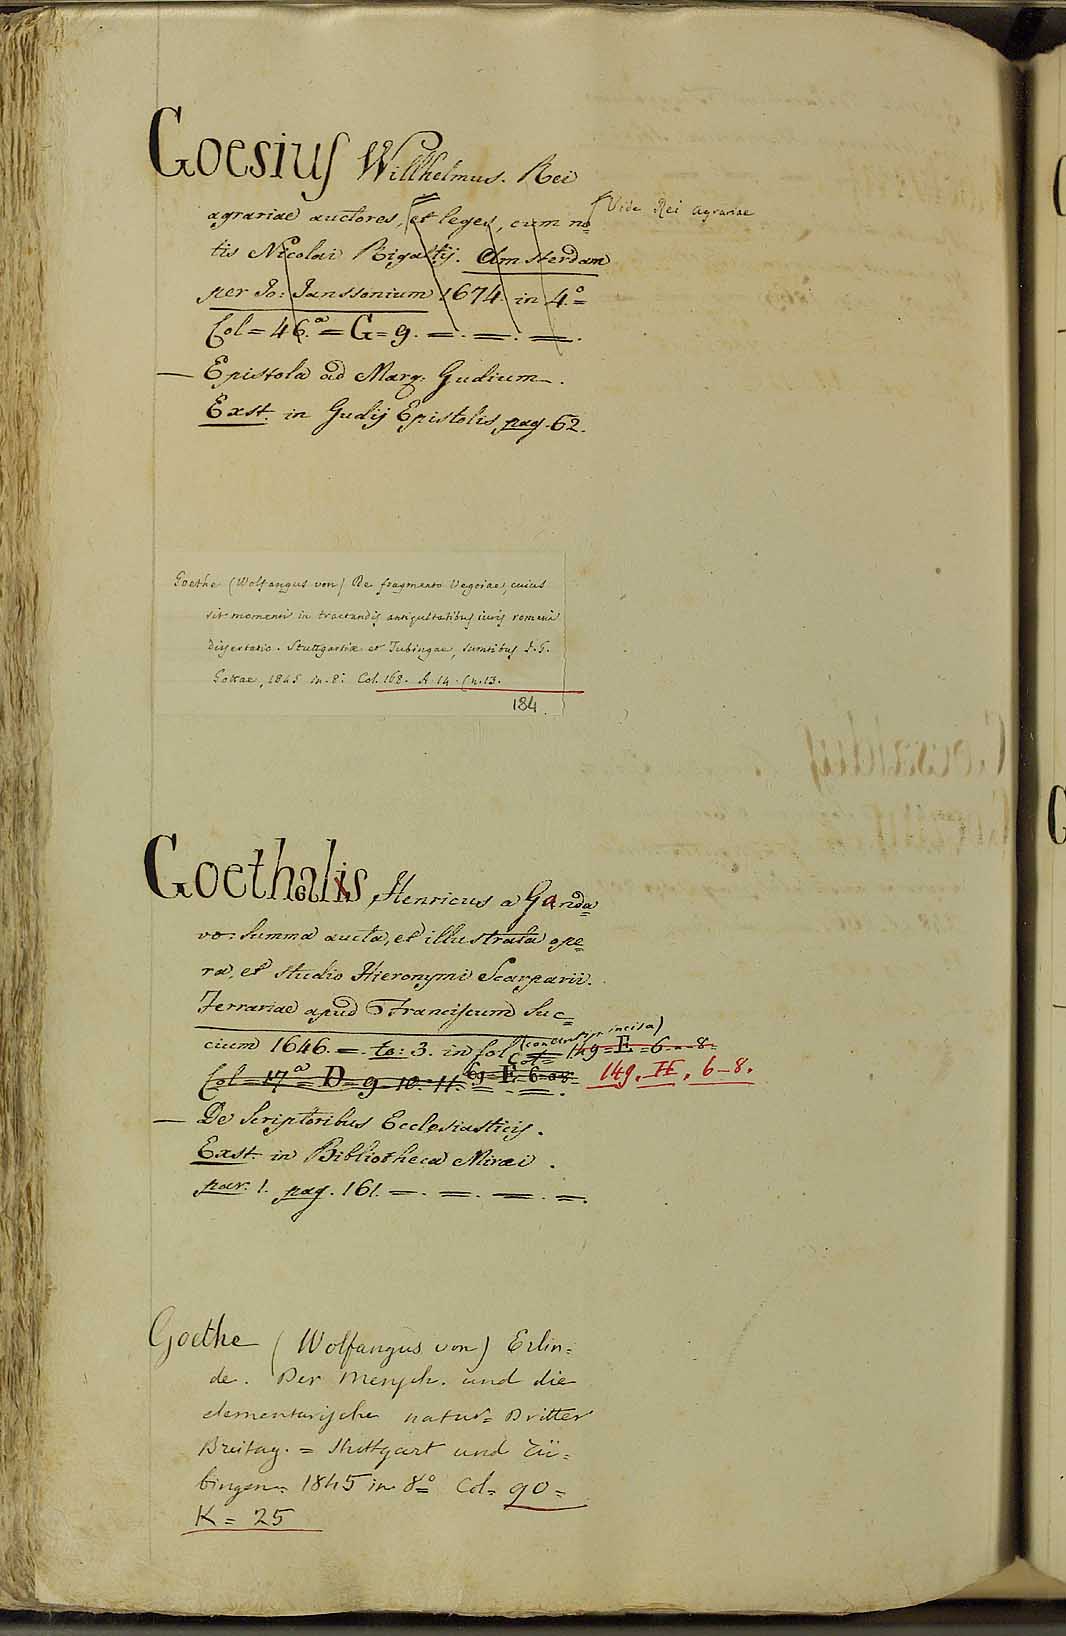 Goesius Willhelmus. Rei
agrariae auctores, et leges, cum no=
Vide Rei agrariae
tis Nicolai Rigaltij. Amsterdam
per Jo: Janssonium 1674. in 4.º=
Col= 46.ª= G= 9. =. =. =.
— Epistola ad Marq. Gudium.
Exst. in Gudij Epistolis, pag. 62.
Goethe (Wolfangus von) De fragmento Vegoiae, cuius
sit momenti in tractandis antiquitatibus iuris romani
Dissertatio. Stuttgartiae et Tubingae, sumtibus I. G.
Cottae, 1845 in. 8º. Col. 168. A. 14. (n. 13.
184.
Goethalis, Henricus a Ganda=
vo: Summa aucta, et illustrata ope=
ra, et studio Hieronymi Scarparii.
Ferrariae apud Franciscum Suc=
cium 1646. =. to: 3. in fol
Col= 149= E= 6.=8.=
Col= 17ª= D= 9- 10- 11. 69= E. 6=a8=
149. H. 6-8.
— De Scriptoribus Ecclesiasticis.
Exst. in Bibliotheca Miraei.
par. 1. pag. 161. =. =. =. =.
Goethe (Wolfangus von) Erlin=
de. Der Mensch. und die
elementarische natur= Dritter
Breitag. = Stuttgart und Tü=
bingen= 1845 in 8º= Col= 90=
K= 25